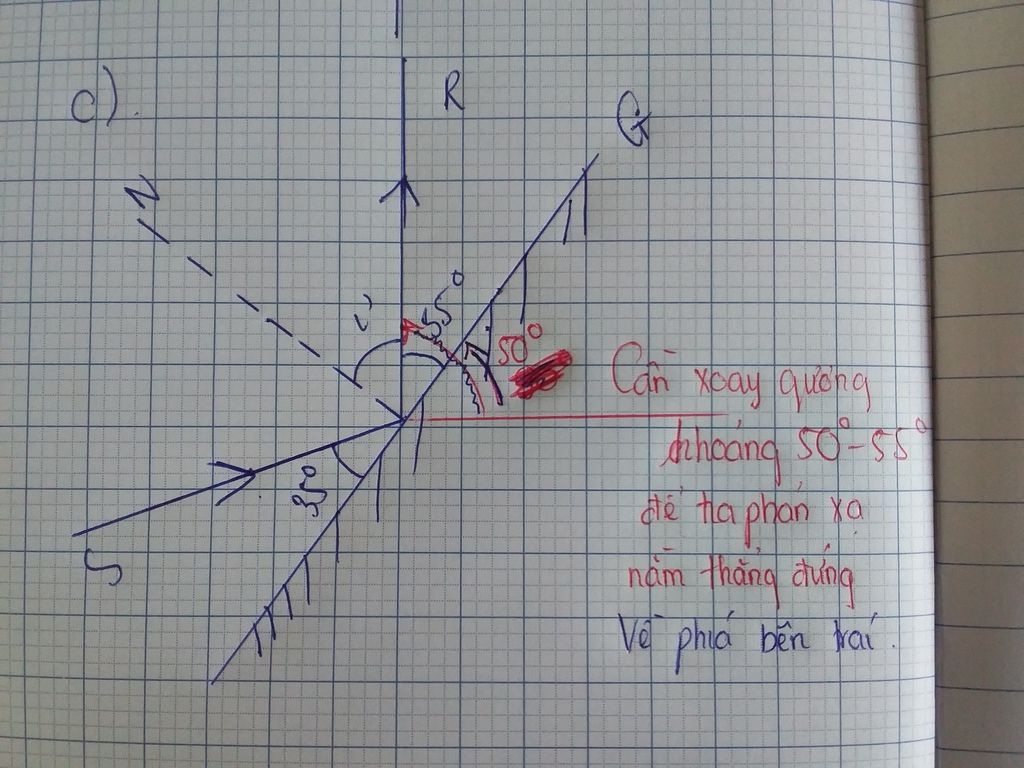 c).
R
G
N
i'
55°
50°
35°
S
Cần xoay gương
khoảng 50° - 55°
để tia phản xạ
nằm thẳng đứng
Về phiá bên trái.